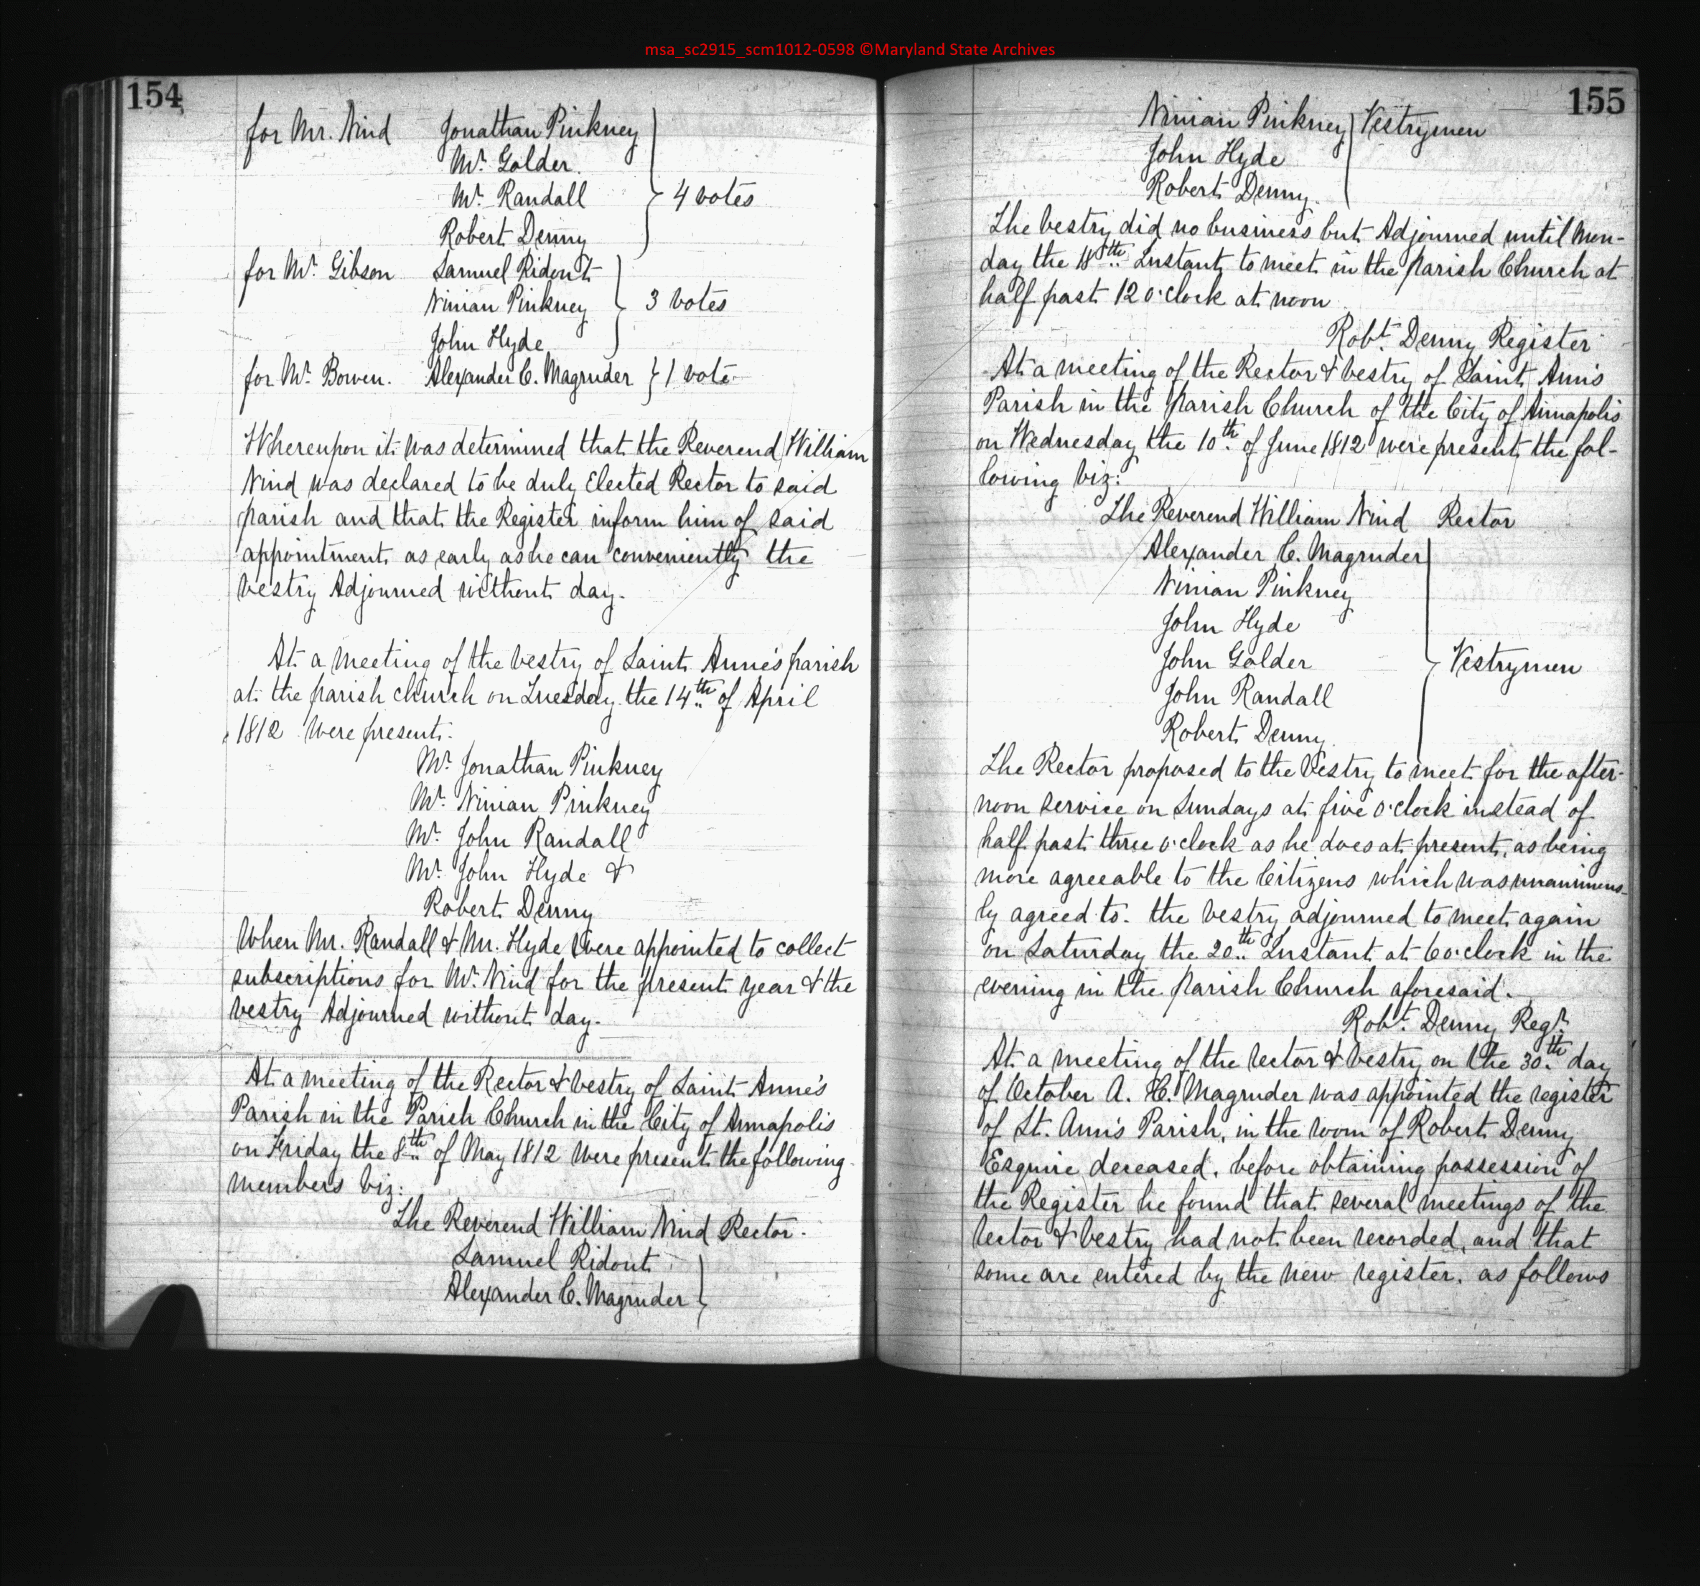 msa_sc2915_scm1012-0598 ©Maryland State Archives
154
for Mr. Nind Jonathan Pinkney
Mr. Golder.
Mr. Randall } 4 votes
Robert Denny
for Mr. Gibson Samuel Ridout
Ninian Pinkney } 3 votes
John Hyde
for Mr. Bowen. Alexander C. Magruder } 1 vote.
Whereupon it was determined that the Reverend William
Nind was declared to be duly Elected Rector to said
parish and that the Register inform him of said
appointment as early as he can conveniently the
vestry Adjourned without day.
At a meeting of the vestry of Saint Anne's parish
at the parish church on Tuesday the 14th of April
1812 were present.
Mr. Jonathan Pinkney
Mr. Ninian Pinkney
Mr. John Randall
Mr. John Hyde &
Robert Denny
When Mr. Randall & Mr. Hyde were appointed to collect
subscriptions for Mr. Nind for the present year & the
vestry Adjourned without day.
At a meeting of the Rector & vestry of Saint Anne's
Parish in the Parish Church in the City of Annapolis
on Friday the 8th of May 1812 were present the following
members viz:
The Reverend William Nind Rector.
Samuel Ridout
Alexander C. Magruder }
155
Ninian Pinkney } Vestrymen
John Hyde
Robert Denny.
The vestry did no business but Adjourned until Mon-
day the 18th Instant to meet in the parish Church at
half past 12 o'clock at noon
Robt. Denny Register
At a meeting of the Rector & vestry of Saint Ann's
Parish in the parish Church of the City of Annapolis
on Wednesday the 10th of June 1812 were present the fol-
lowing viz:
The Reverend William Nind Rector
Alexander C. Magruder
Ninian Pinkney
John Hyde
John Golder } Vestrymen
John Randall
Robert Denny
The Rector proposed to the Vestry to meet for the after-
noon service on Sundays at five o'clock instead of
half past three o'clock as he does at present, as being
more agreeable to the Citizens which was unanimous-
ly agreed to. the vestry adjourned to meet again
on Saturday the 20th Instant at 6 o'clock in the
evening in the parish Church aforesaid.
Robt. Denny Regr.
At a meeting of the rector & vestry on the 30th day
of October A. C. Magruder was appointed the register
of St. Ann's Parish, in the room of Robert Denny
Esquire deceased, before obtaining possession of
the Register he found that several meetings of the
rector & vestry had not been recorded, and that
some are entered by the new register. as follows